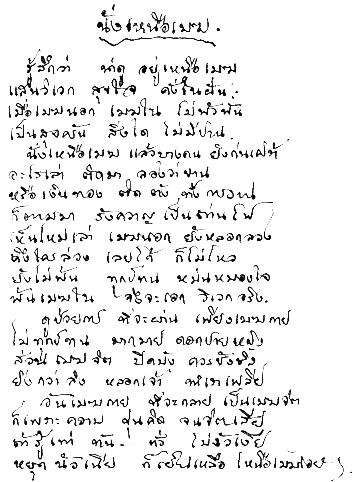 นั่งเหนือเมฆ.
รู้สึกว่า นั่ง อยู่เหนือเมฆ
แสนวิเวก สุขใจ ดั่งในฝัน
เมื่อเมฆนอก เมฆใน ไม่พัวพัน
เป็นสุขครัน สิ่งใด ไม่มีปาน
นั่งเหนือเมฆ แล้วบางคน ยังก่นเฝ้า
อะไรเล่า คิดมา
หรือเงินทอง ติด ตัง ทั้ง
ก็ตามมา รังควาญ เป็น
เห็นไหมเล่า เมฆนอก ยังหลอกลวง
ถึงใครล่วง เลยได้ ก็ไม่ไหว
ยังไม่พ้น ทุกข์ทน หม่นหมองใจ
พ้นเมฆใน จึงจะเอก วิเวกจริง.
ดูป่วยการ ที่จะผ่าน เพียงเมฆกาย
ไม่ทุกข์ทน มากมาย ดอกชายหญิง
ส่วนเมฆจิต ปิดบัง ควรชังชิง
ยิ่งกว่าสิ่ง หลอกเจ้า
อันเมฆกาย ที่จะกลาย เป็นเมฆจิต
ก็เพราะความ คิด จนจิตเสีย
ถ้ารู้เท่า ทัน ไม่งัวเงีย
ก็เยี่ยมเหลือ เหนือเมฆเอย